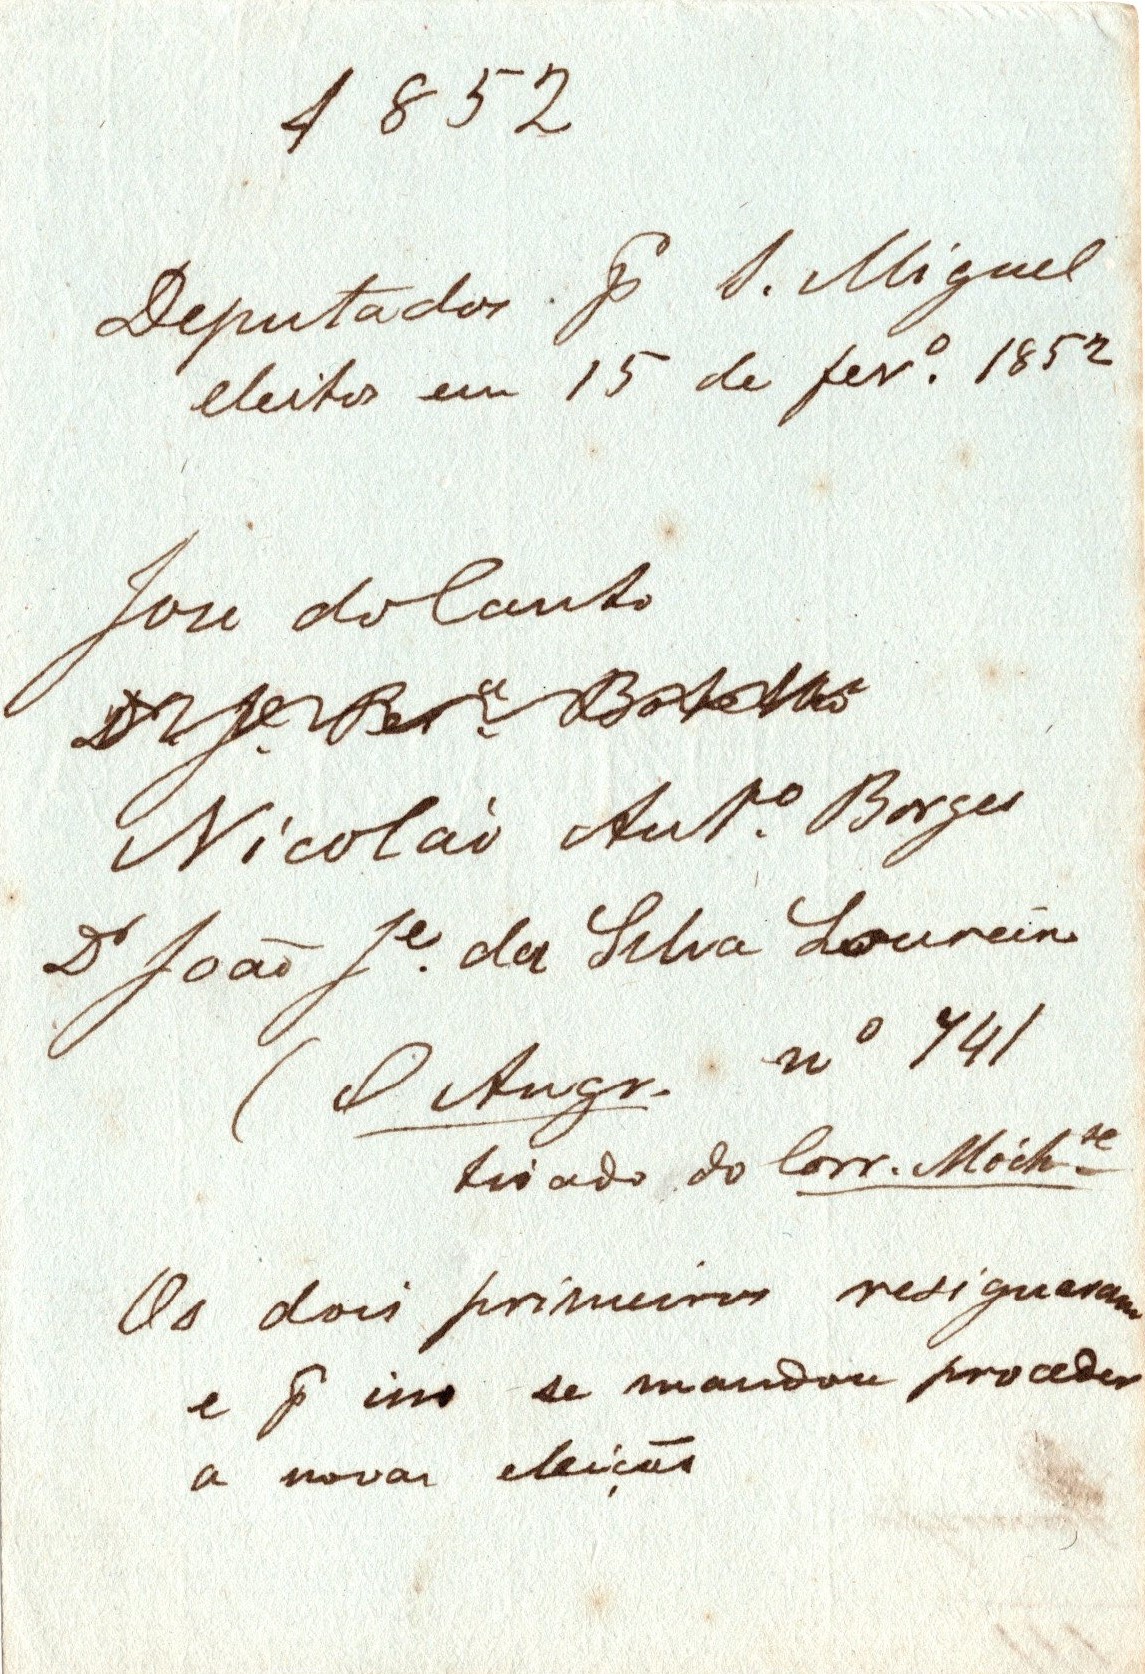 1852
Deputados p. S. Miguel
eleitos em 15 de fev.º 1852
Jose do Canto
Dr. Je. Per.ª Botelho
Nicoláo Ant.º Borges
Dr João Je. da Silva Loureiro
( O Angr. nº 741
tirado do Corr. Mich.se
Os dois primeiros resignaram
e p isso se mandou proceder
a novas eleições